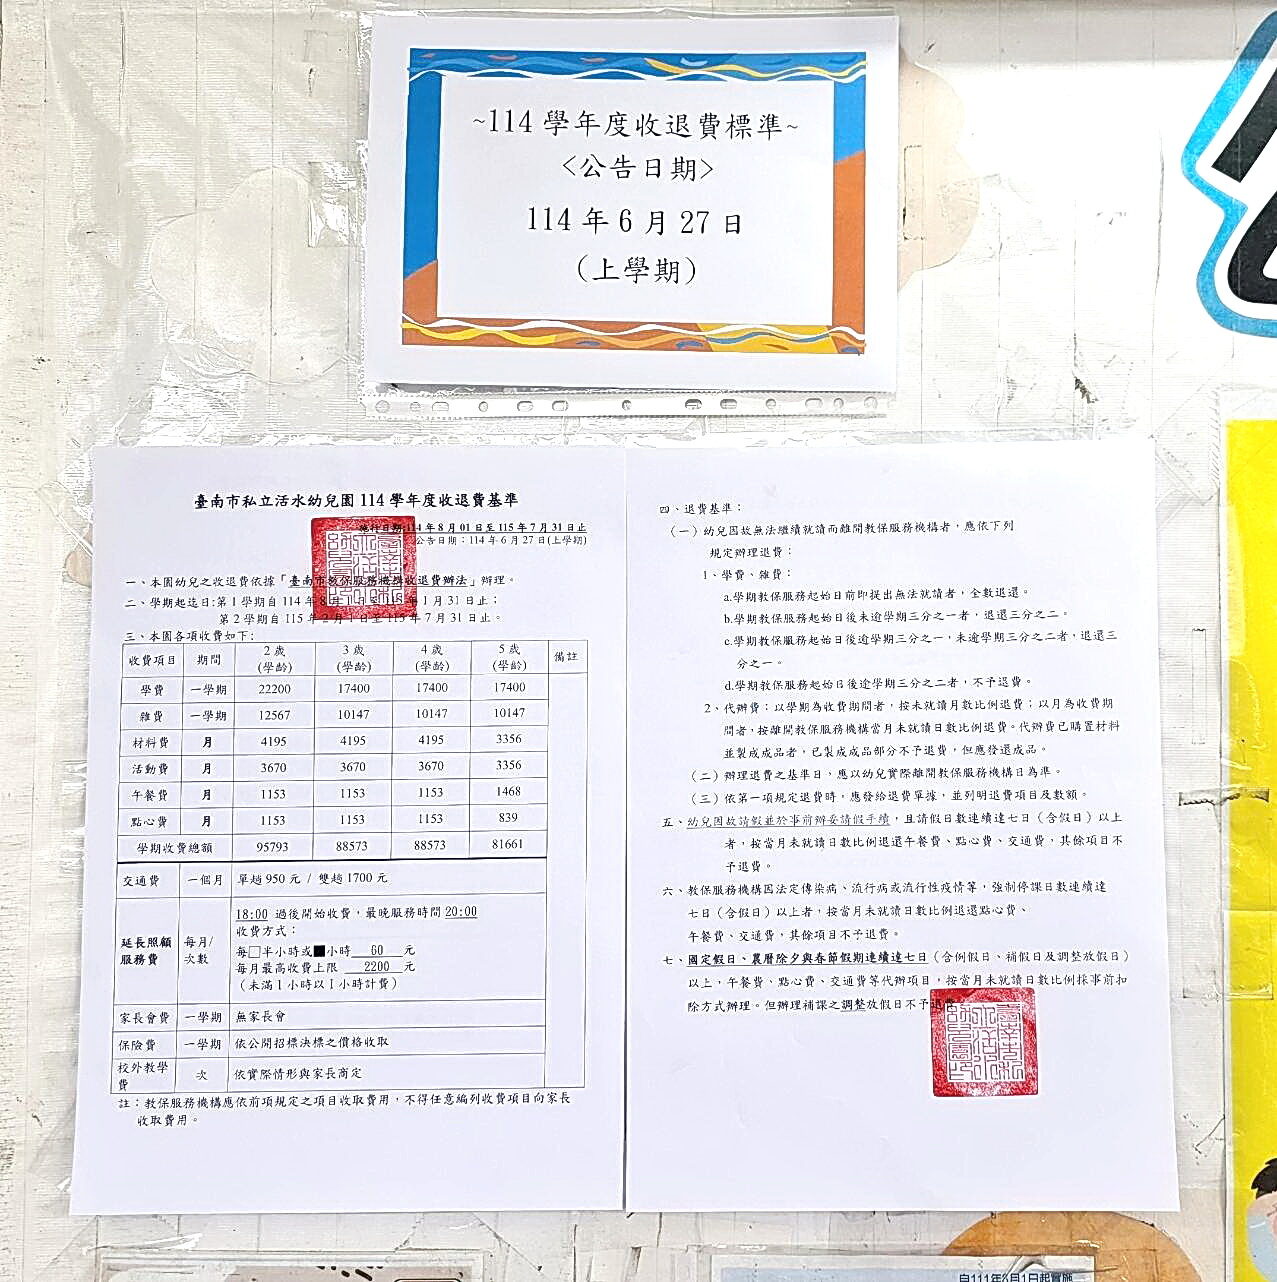 ~114 學年度收退費標準~
<公告日期>
114 年 6 月 27 日
(上學期)
臺南市私立活水幼兒園 114 學年度收退費基準
施行日期:114 年 8 月 01 日至 115 年 7 月 31 日止
公告日期：114 年 6 月 27 日(上學期)
一、本園幼兒之收退費依據「臺南市教保服務機構收退費辦法」辦理。
二、學期起迄日:第 1 學期自 114 年 8 至 115 年 1 月 31 日止；
第 2 學期自 115 年 2 月 1 日至 115 年 7 月 31 日止。
三、本園各項收費如下:
收費項目 期間 2 歲(學齡) 3 歲(學齡) 4 歲(學齡) 5 歲(學齡) 備註
學費 一學期 22200 17400 17400 17400
雜費 一學期 12567 10147 10147 10147
材料費 月 4195 4195 4195 3356
活動費 月 3670 3670 3670 3356
午餐費 月 1153 1153 1153 1468
點心費 月 1153 1153 1153 839
學期收費總額 95793 88573 88573 81661
交通費 一個月 單趟 950 元 / 雙趟 1700 元
延長照顧服務費 每月/次數 18:00 過後開始收費，最晚服務時間 20:00
收費方式：
每□半小時或■小時 60 元
每月最高收費上限 2200 元
(未滿 1 小時以 1 小時計費)
家長會費 一學期 無家長會
保險費 一學期 依公開招標決標之價格收取
校外教學費 次 依實際情形與家長商定
註：教保服務機構應依前項規定之項目收取費用，不得任意編列收費項目向家長
收取費用。
四、退費基準：
(一)幼兒因故無法繼續就讀而離開教保服務機構者，應依下列
規定辦理退費：
1、學費、雜費：
a.學期教保服務起始日前即提出無法就讀者，全數退還。
b.學期教保服務起始日後未逾學期三分之一者，退還三分之二。
c.學期教保服務起始日後逾學期三分之一，未逾學期三分之二者，退還三
分之一。
d.學期教保服務起始日後逾學期三分之二者，不予退費。
2、代辦費：以學期為收費期間者，按未就讀月數比例退費；以月為收費期
間者，按離開教保服務機構當月未就讀日數比例退費。代辦費已購置材料
並製成成品者，已製成成品部分不予退費，但應發還成品。
(二)辦理退費之基準日，應以幼兒實際離開教保服務機構日為準。
(三)依第一項規定退費時，應發給退費單據，並列明退費項目及數額。
五、幼兒因故請假並於事前辦妥請假手續，且請假日數連續達七日（含假日）以上
者，按當月未就讀日數比例退還午餐費、點心費、交通費，其餘項目不
予退費。
六、教保服務機構因法定傳染病、流行病或流行性疫情等，強制停課日數連續達
七日(含假日)以上者，按當月未就讀日數比例退還點心費、
午餐費、交通費，其餘項目不予退費。
七、國定假日、農曆除夕與春節假期連續達七日（含例假日、補假日及調整放假日）
以上，午餐費、點心費、交通費等代辦項目，按當月未就讀日數比例採事前扣
除方式辦理。但辦理補課之調整放假日不予退費
自111年8月1日起實施